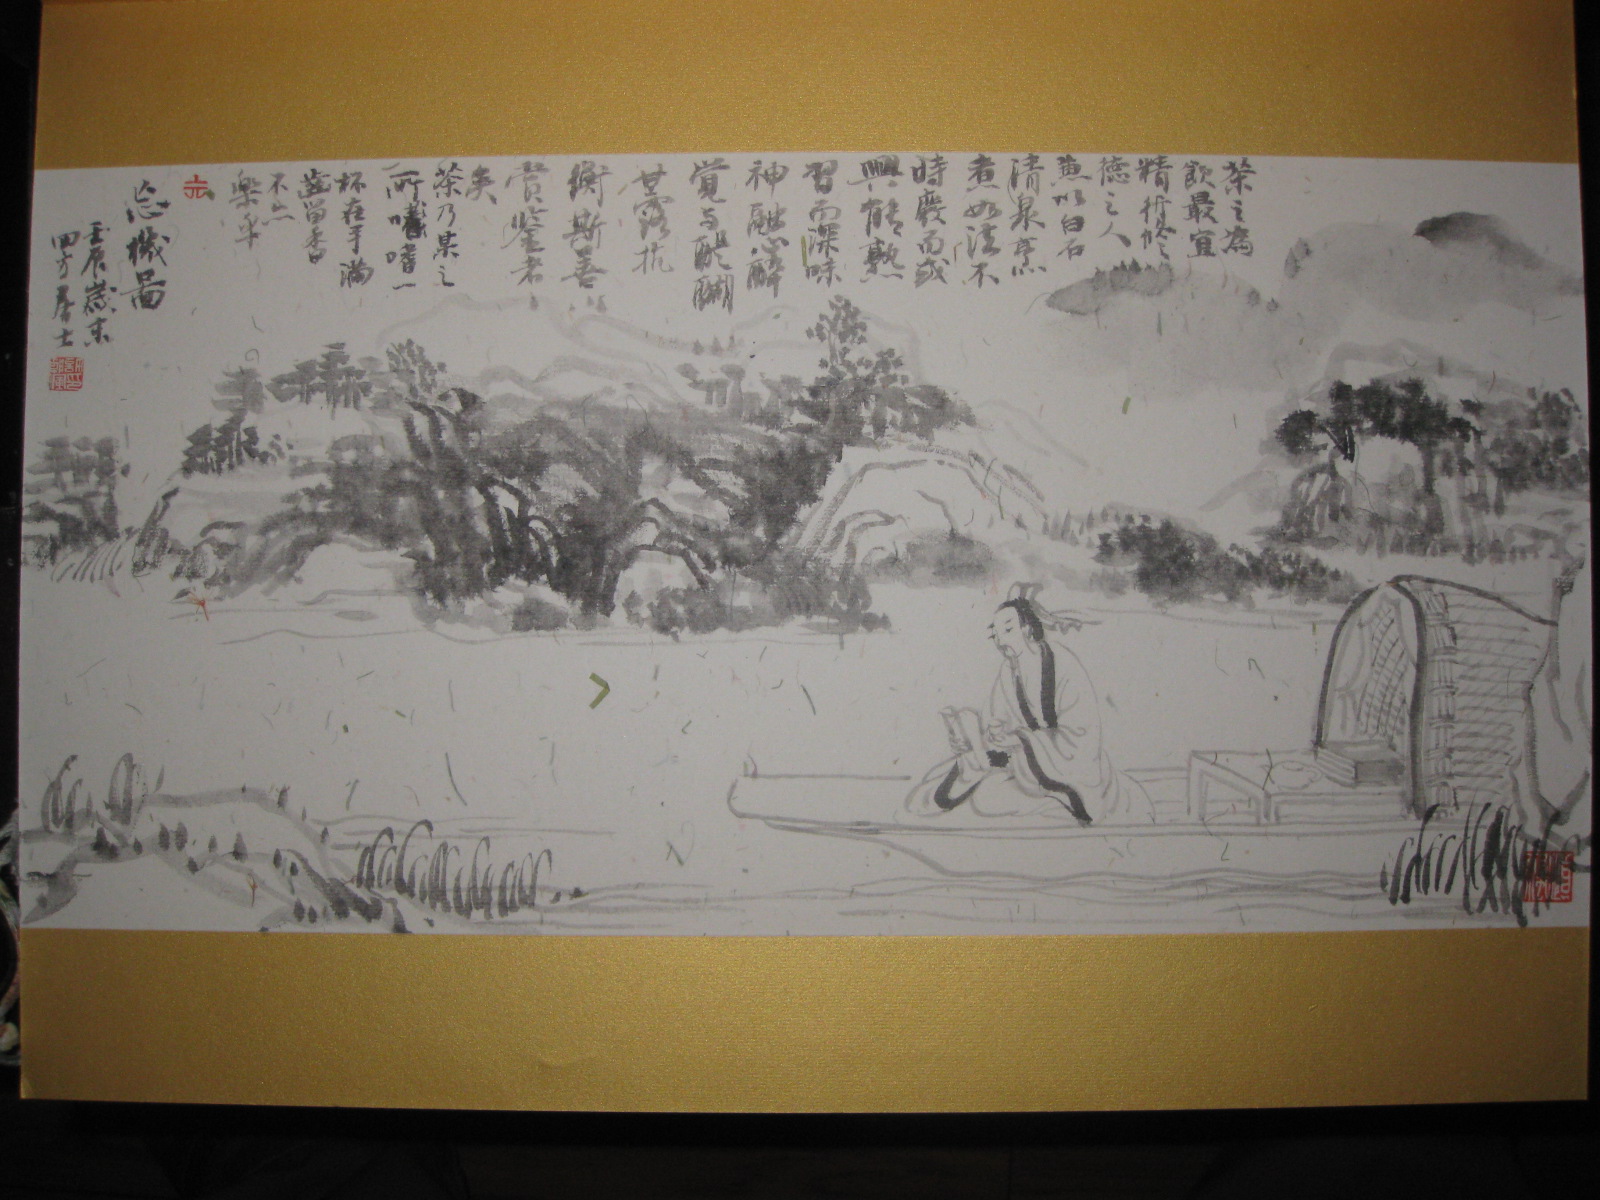 茶之為
飲最宜
精行修
德之人
兼以白石
清泉烹
煮如法不
時廢而或
興能熟
習而深味
神融心醉
覺與醍醐
甘露抗
衡斯善
賞鑒者
矣
茶乃某之
所嗜一
杯在手滿
齒留香
不亦
樂乎
忘機圖
壬辰歲末
四方居士